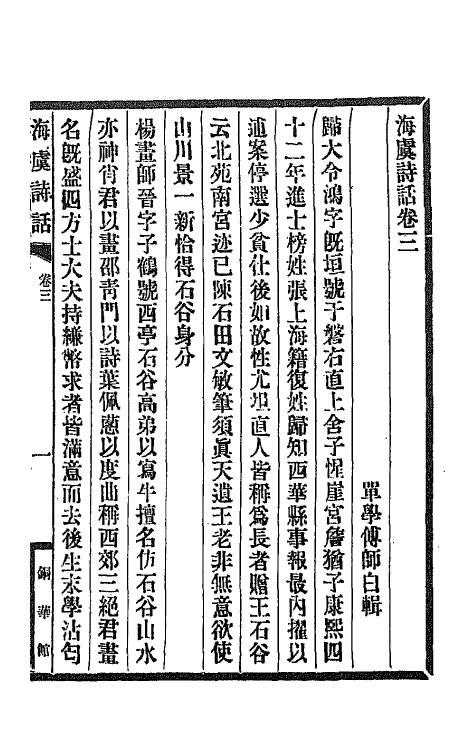 海虞詩話卷三
單學傅師白輯
歸大令鴻字旣垣號于磐右直上舍子惺崖宮詹猶子康熙四
十二年進士榜姓張上海籍復姓歸知西華縣事報最內擢以
逋案停選少貧仕後如故性尤坦直人皆稱爲長者贈王石谷
云北苑南宮迹已陳石田文敏筆須眞天遺王老非無意欲使
山川景一新恰得石谷身分
楊畫師晉字子鶴號西亭石谷高弟以寫牛擅名仿石谷山水
亦神肖君以畫邵靑門以詩葉佩蒽以度曲稱西郊三絕君畫
名旣盛四方士大夫持縑幣求者皆滿意而去後生末學沾匄
海虞詩話
卷三
一
銅華館